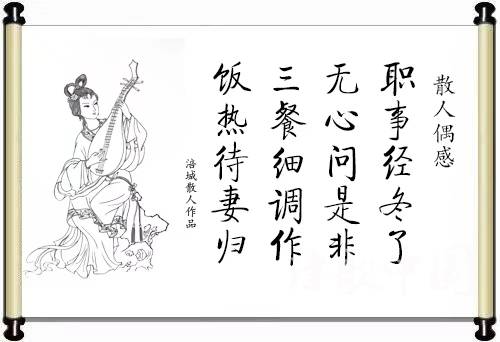 散人偶感
职事经冬了
无心问是非
三餐细调作
饭热待妻归
涪城散人作品